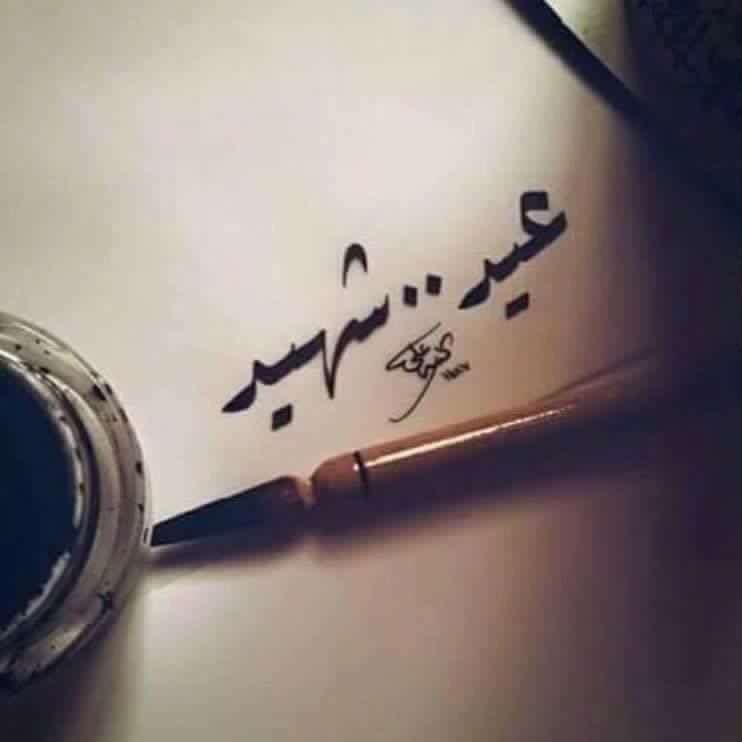 عيد .. شهيد